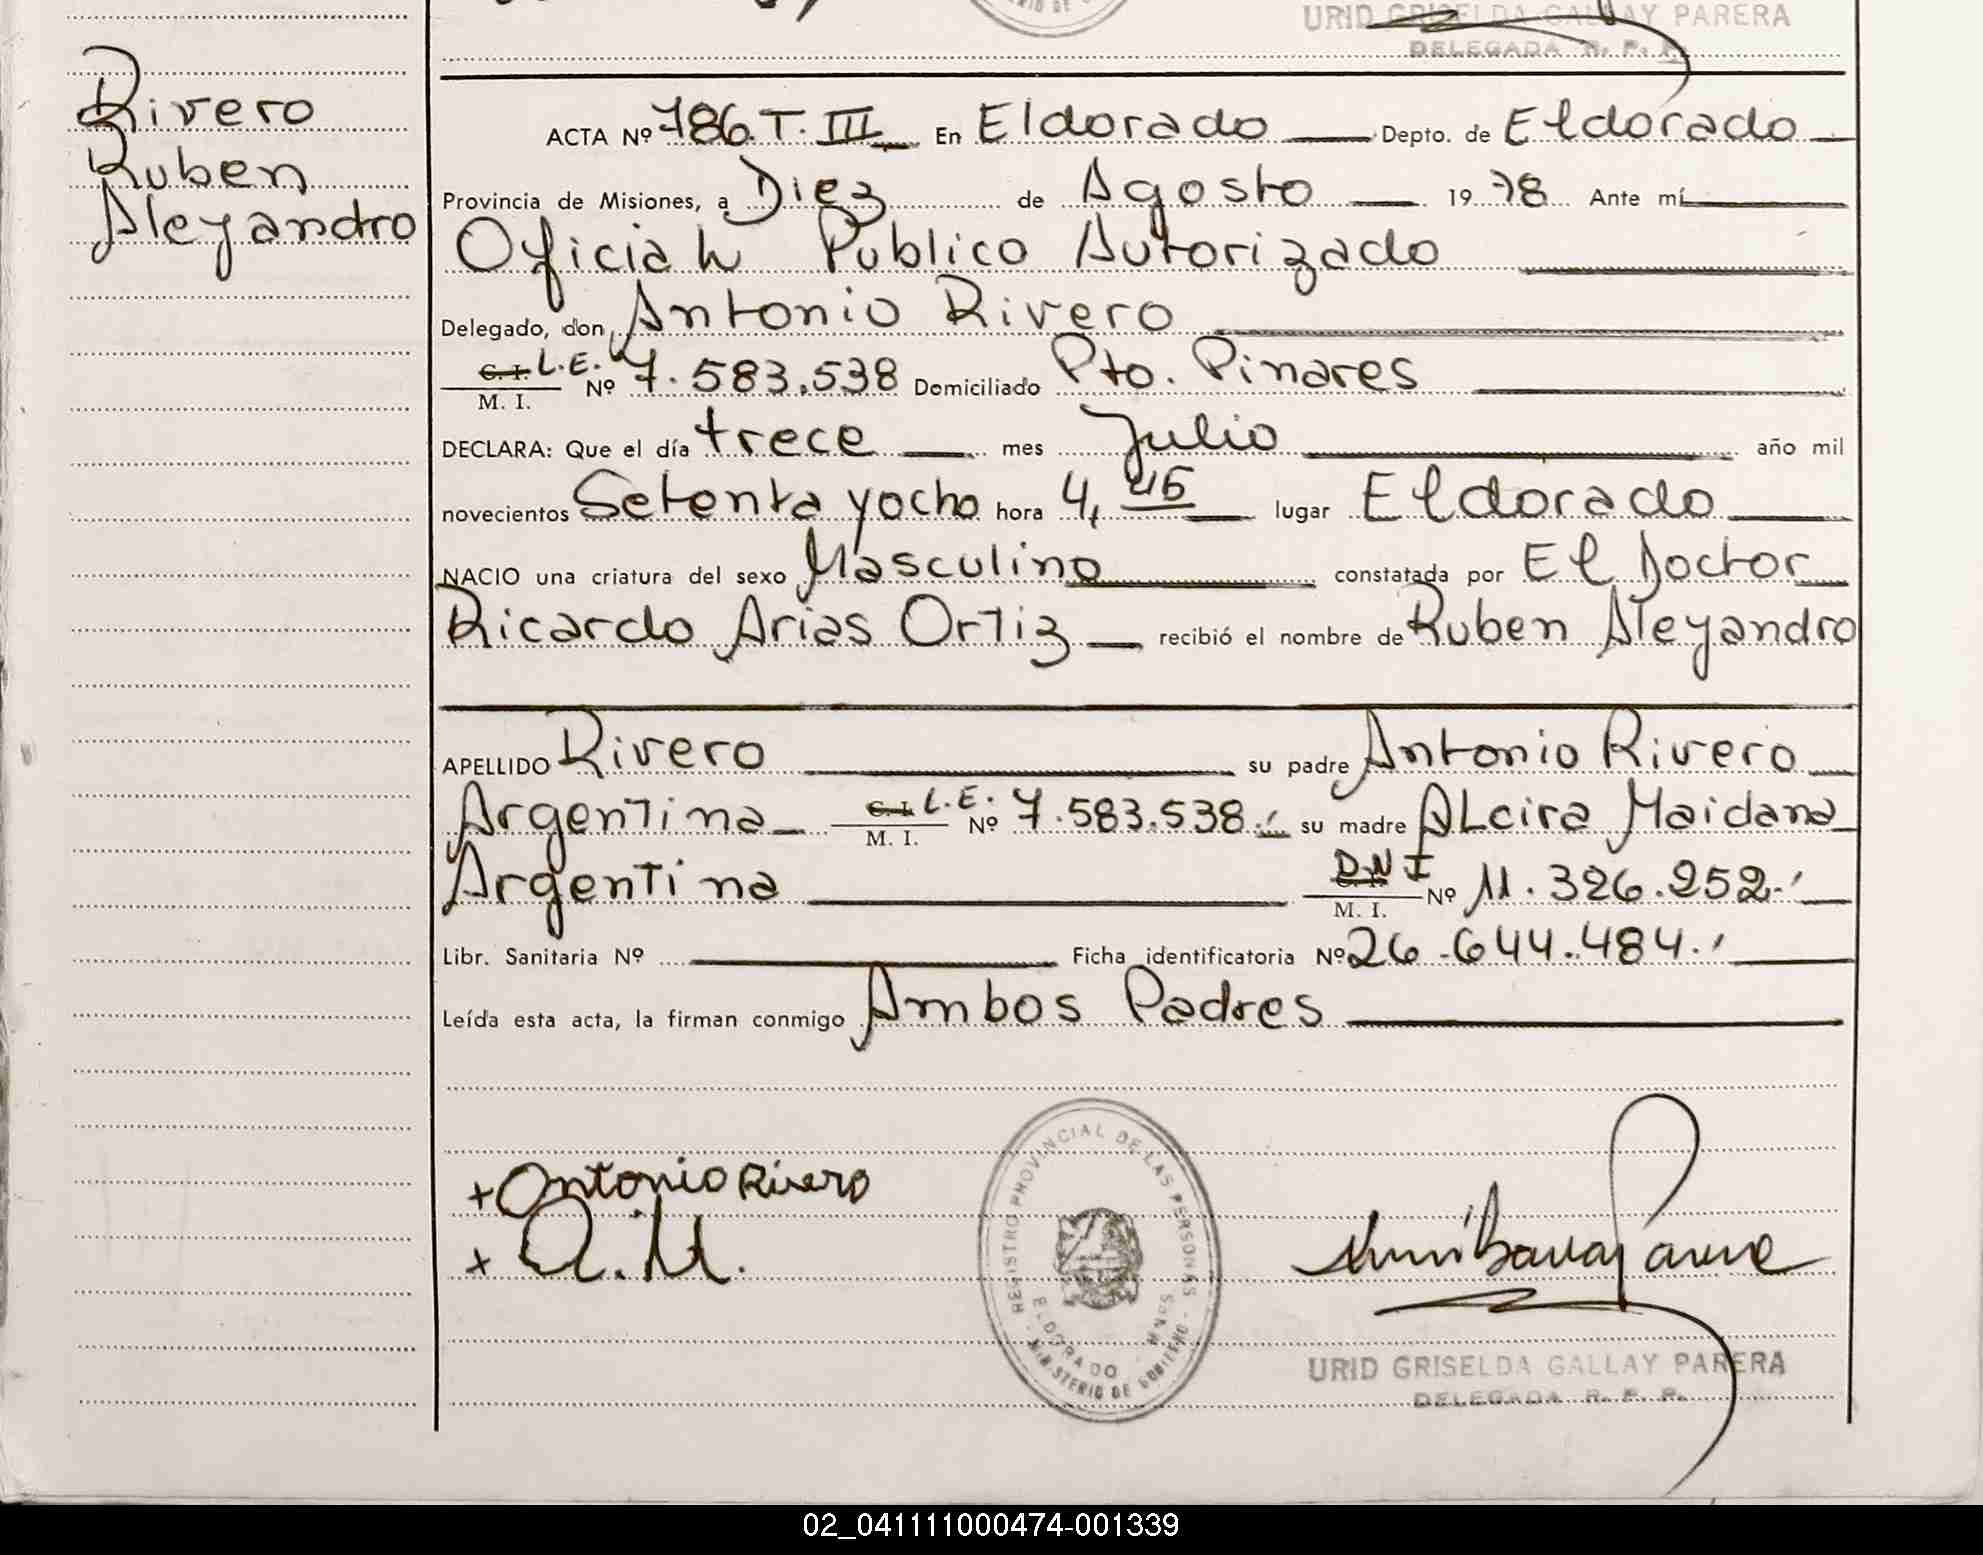 URID GRISELDA GALLAY PARERA
DELEGADA R. P. P.
Rivero
Ruben
Aleyandro
ACTA Nº 786. T. III En Eldorado Depto. de Eldorado
Provincia de Misiones, a Diez de Agosto 1978 Ante mí
Oficial Publico Autorizado
Delegado, don Antonio Rivero
C. I. L.E. M. I. Nº 7.583.538 Domiciliado Pto. Pinares
DECLARA: Que el día trece mes Julio año mil
novecientos Setenta y ocho hora 4, 45 lugar Eldorado
NACIO una criatura del sexo Masculino constatada por El Doctor
Ricardo Arias Ortiz recibió el nombre de Ruben Aleyandro
APELLIDO Rivero su padre Antonio Rivero
Argentina C. I. L.E. M. I. Nº 7.583.538.- su madre ALcira Maidana
Argentina D.N.I M. I. Nº 11.326.252.-
Libr. Sanitaria Nº Ficha identificatoria Nº 26.644.484.-
Leída esta acta, la firman conmigo Ambos Padres
+ Antonio Rivero
+ A. M.
REGISTRO PROVINCIAL DE LAS PERSONAS
ELDORADO
MINISTERIO DE GOBIERNO
URID GRISELDA GALLAY PARERA
DELEGADA R. P. P.
02_041111000474-001339